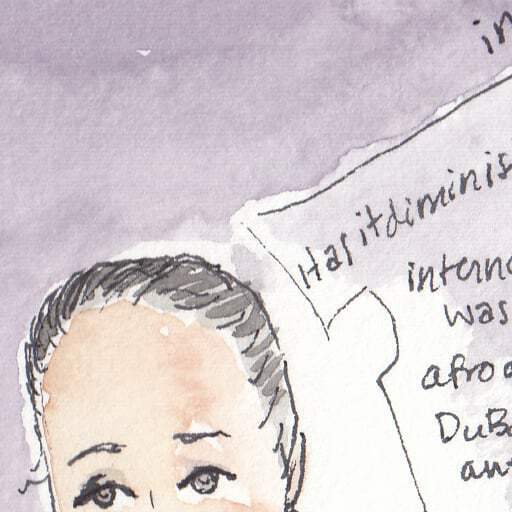 in
Has it diminis
interna
was
afro
DuB
an